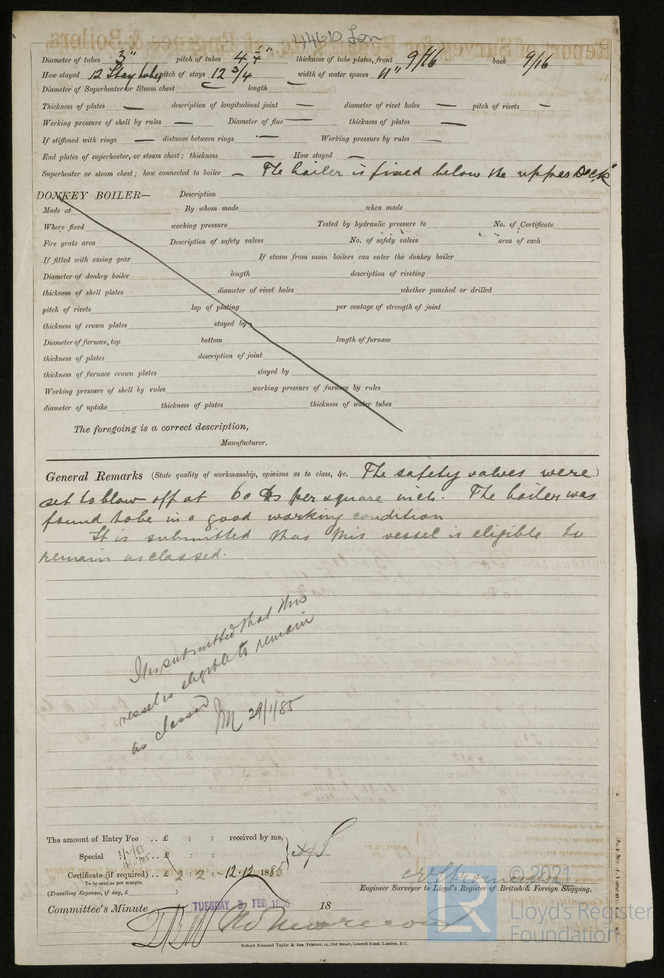 44610 Lon
Diameter of tubes 3" pitch of tubes 4 1/4" thickness of tube plates, front 9/16 back 9/16
How stayed 12 Stay tubes pitch of stays 12 3/4 width of water spaces 11"
Diameter of Superheater or Steam chest — length —
Thickness of plates — description of longitudinal joint — diameter of rivet holes — pitch of rivets —
Working pressure of shell by rules — Diameter of flue — thickness of plates —
If stiffened with rings — distance between rings — Working pressure by rules —
End plates of superheater, or steam chest; thickness — How stayed —
Superheater or steam chest; how connected to boiler — The boiler is fixed below the upper Deck
DONKEY BOILER— Description
Made at By whom made when made
Where fixed working pressure Tested by hydraulic pressure to No. of Certificate
Fire grate area Description of safety valves No. of safety valves area of each
If fitted with easing gear If steam from main boilers can enter the donkey boiler
Diameter of donkey boiler length description of riveting
thickness of shell plates diameter of rivet holes whether punched or drilled
pitch of rivets lap of plating per centage of strength of joint
thickness of crown plates stayed by
Diameter of furnace, top bottom length of furnace
thickness of plates description of joint
thickness of furnace crown plates stayed by
Working pressure of shell by rules working pressure of furnace by rules
diameter of uptake thickness of plates thickness of water tubes
The foregoing is a correct description,
Manufacturer.
General Remarks (State quality of workmanship, opinions as to class, &c. The safety valves were
set to blow off at 60 lbs per square inch. The boiler was
found to be in a good working condition
It is submitted that this vessel is eligible to
remain as classed.
It is submitted that this
vessel is eligible to remain
as classed
29/1/85
The amount of Entry Fee .. £ : : received by me,
Special
Certificate (if required) .. £ 2 : 2 : - 12.12.1885
To be sent as per margin.
(Travelling Expenses, if any, £ )
Engineer Surveyor to Lloyd's Register of British & Foreign Shipping.
Committee's Minute TUESDAY 3 FEB 1885 18
Robert Edmund Taylor & Son Printers, 19, Old Street, Goswell Road, London, E.C.
© 2021
LR
Lloyd's Register
Foundation